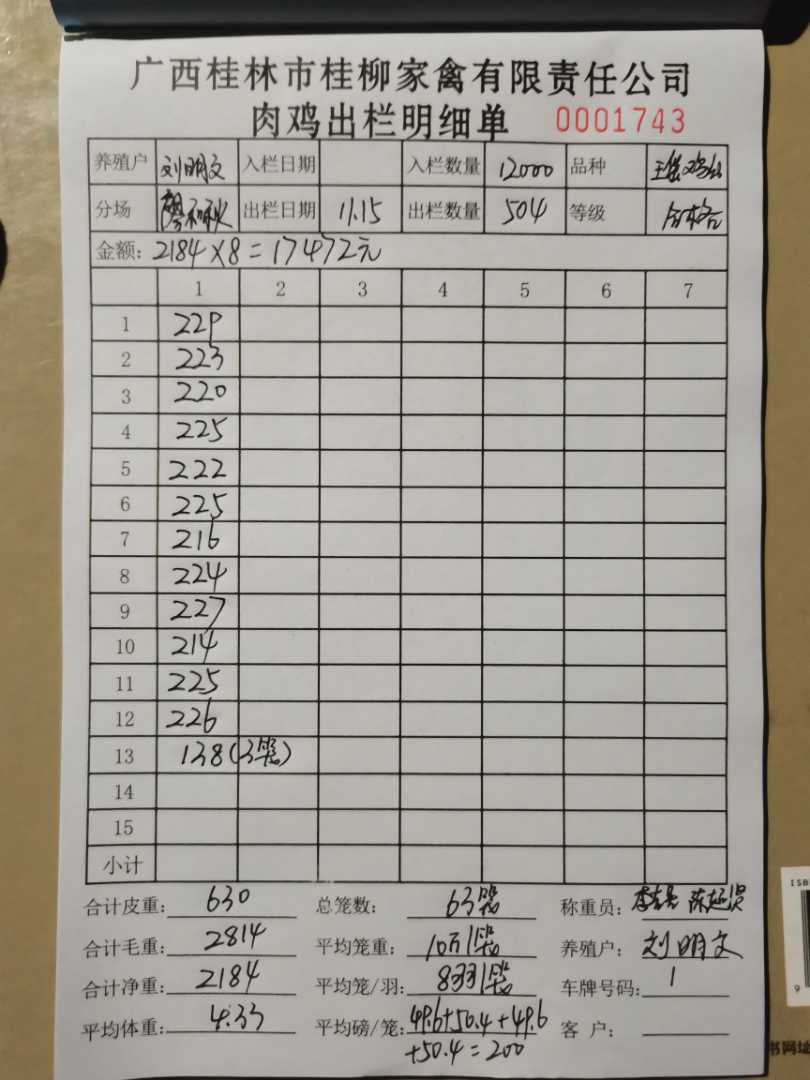 广西桂林市桂柳家禽有限责任公司
肉鸡出栏明细单 0001743
养殖户 刘明文 入栏日期 入栏数量 12000 品种
分场 出栏日期 11.15 出栏数量 504 等级 合格
金额: 2184×8=17472元
1 2 3 4 5 6 7
1 229
2 223
3 220
4 225
5 222
6 225
7 216
8 224
9 227
10 214
11 225
12 226
13 138(3笼)
14
15
小计
合计皮重: 630 总笼数: 63笼 称重员:
合计毛重: 2814 平均笼重: 10斤/笼 养殖户: 刘明文
合计净重: 2184 平均笼/羽: 8羽/笼 车牌号码: 1
平均体重: 4.33 平均磅/笼: 49.6+50.4+49.6 客户:
+50.4=200
ISB
9
书网址